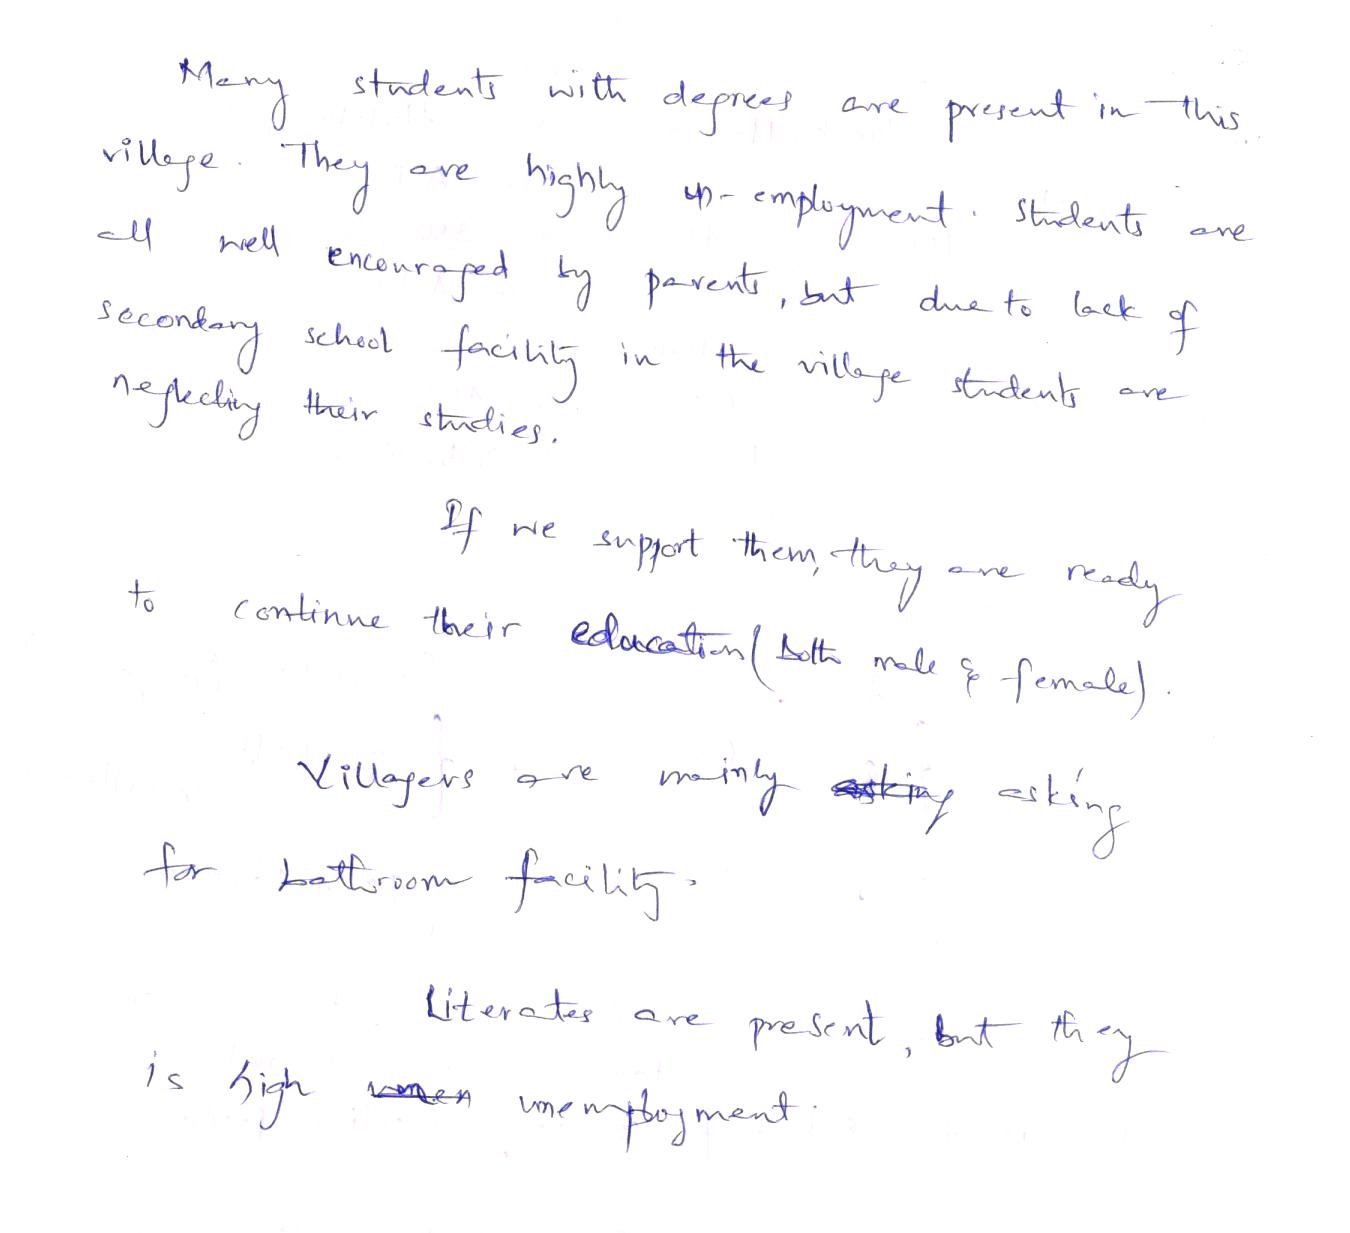 Many students with degrees are present in this
village. They are highly un-employment. Students are
all well encouraged by parents, but due to lack of
secondary school facility in the village students are
neglecting their studies.
If we support them, they are ready
to continue their education (both male & female).
Villagers are mainly asking asking
for bathroom facility.
Literates are present, but they
is high unemployment.